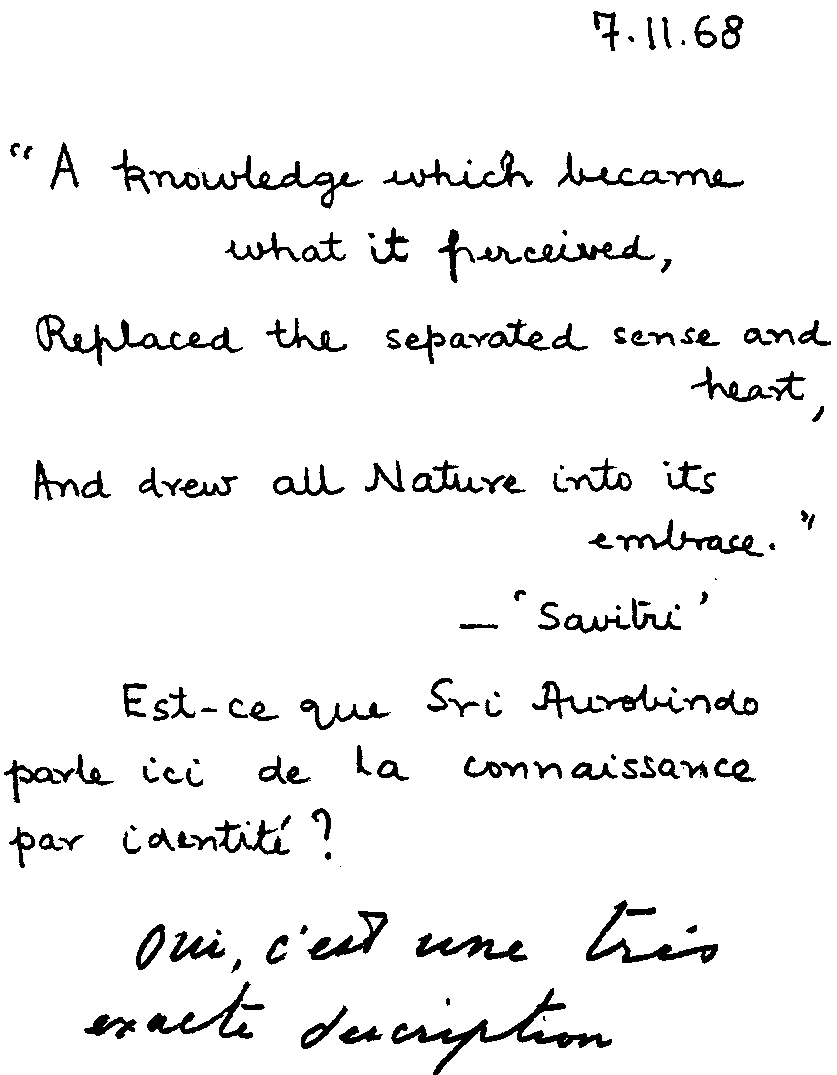 7.11.68
"A knowledge which became
what it perceived,
Replaced the separated sense and
heart,
And drew all Nature into its
embrace."
— 'Savitri'
Est-ce que Sri Aurobindo
parle ici de la connaissance
par identité ?
Oui, c'est une très
exacte description